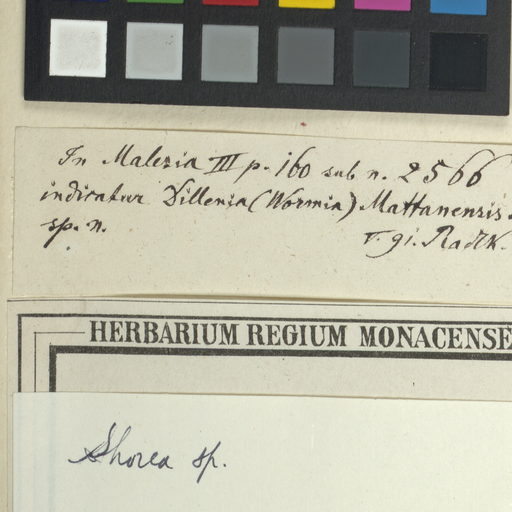 In Malesia III p. 160 sub n. 2566
indicatur Dillenia (Wormia) Mattanensis
sp. n.
v. gi. Radlk.
HERBARIUM REGIUM MONACENSE
Shorea sp.